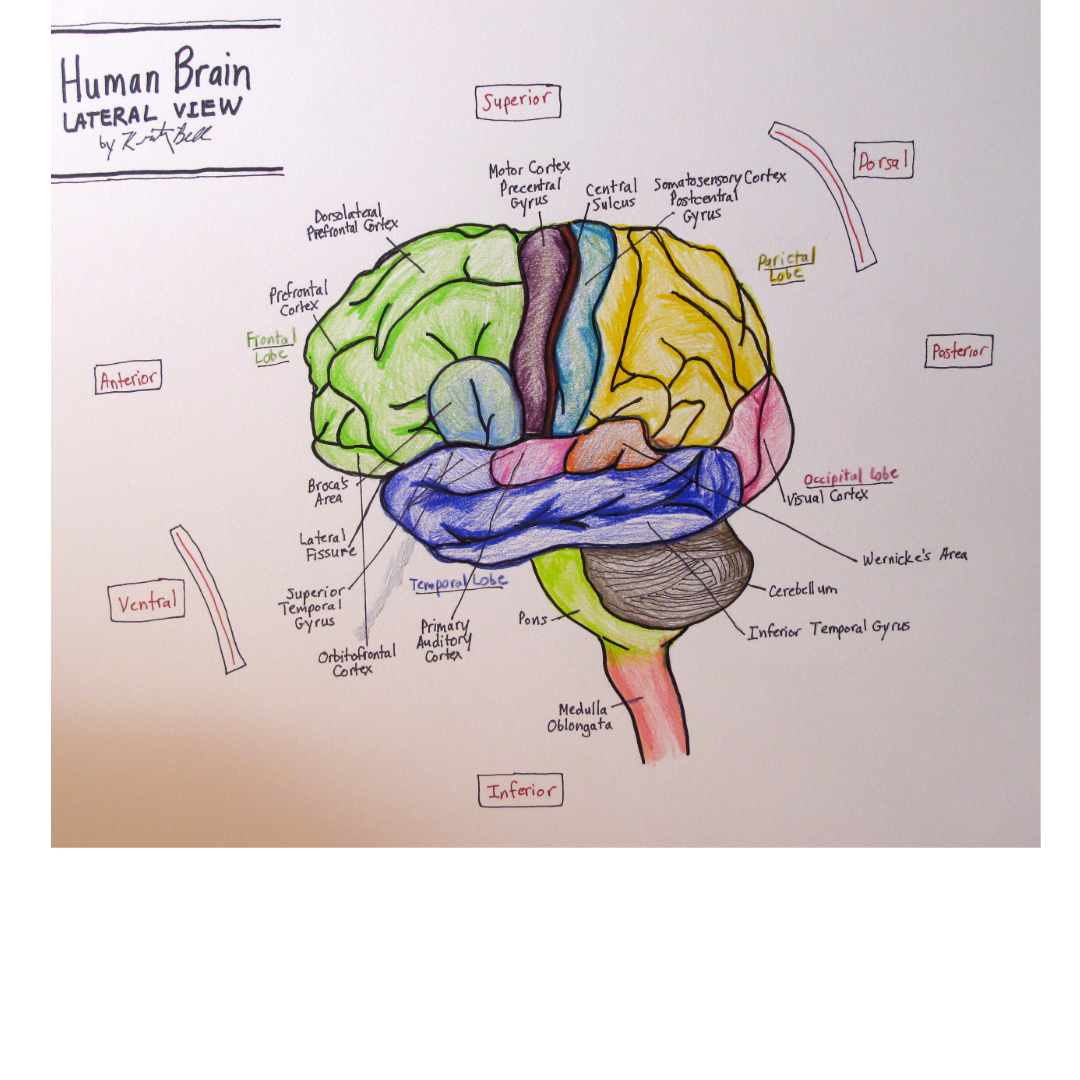 Human Brain
LATERAL VIEW
by
Superior
Dorsal
Motor Cortex
Precentral
Gyrus
Central
Sulcus
Somatosensory Cortex
Postcentral
Gyrus
Dorsolateral
Prefrontal Cortex
Parietal
Lobe
Prefrontal
Cortex
Frontal
Lobe
Anterior
Posterior
Broca's
Area
Occipital lobe
Visual Cortex
Lateral
Fissure
Wernicke's Area
Temporal Lobe
Cerebellum
Superior
Temporal
Gyrus
Ventral
Pons
Inferior Temporal Gyrus
Primary
Auditory
Cortex
Orbitofrontal
Cortex
Medulla
Oblongata
Inferior